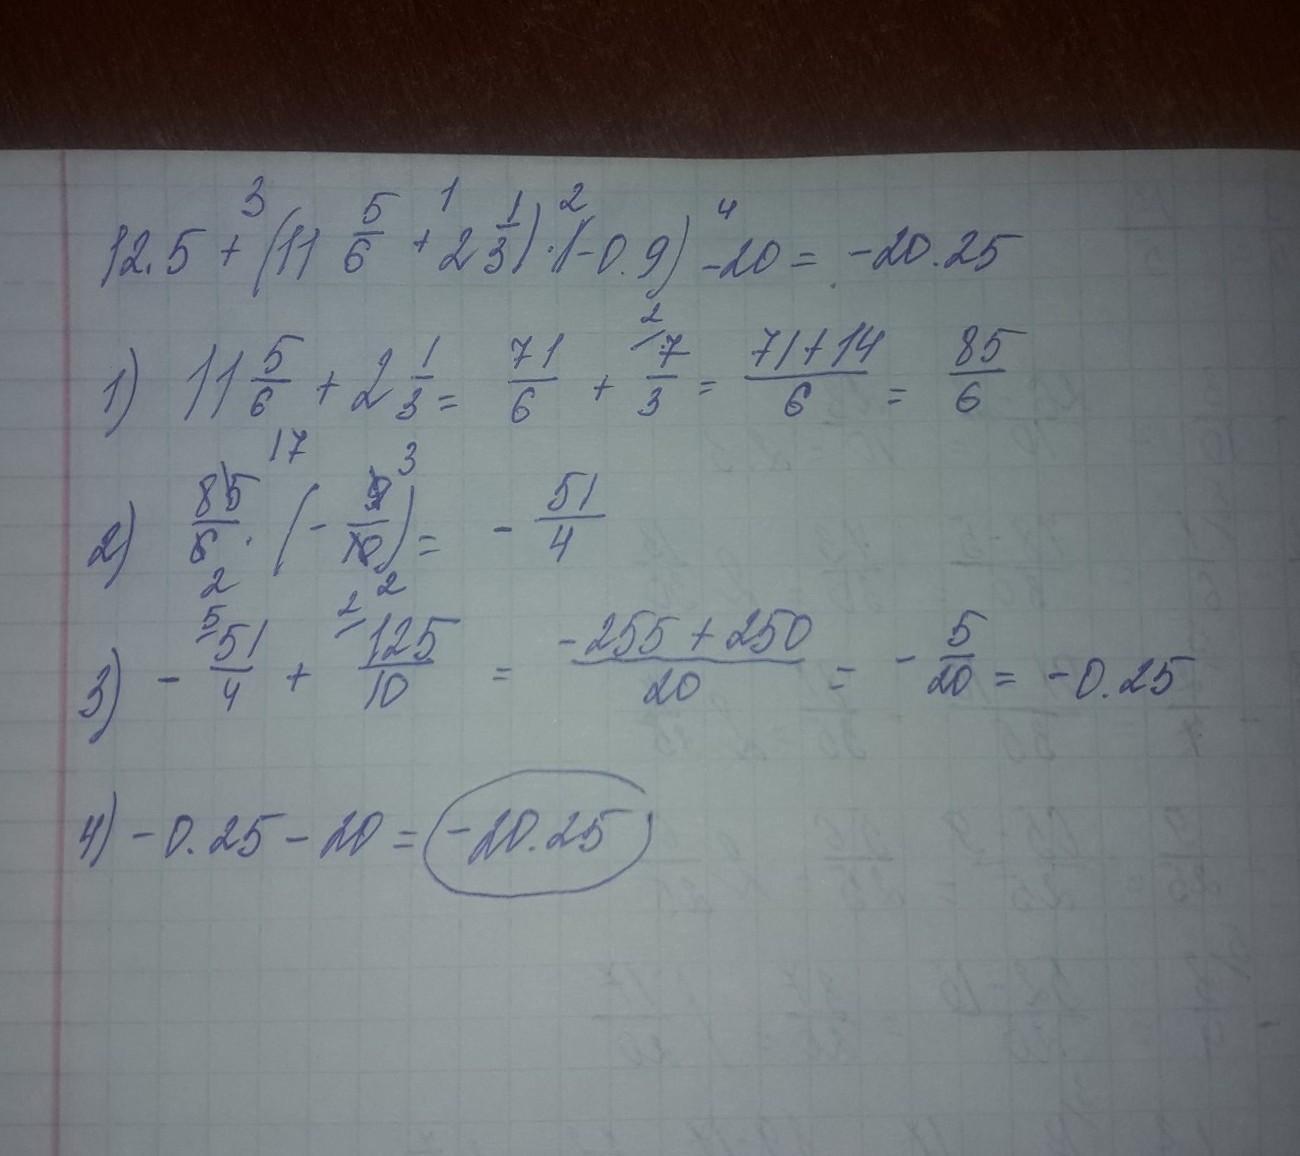 12.5 + (11 5/6 + 2 1/3) · (-0.9) - 20 = -20.25
1) 11 5/6 + 2 1/3 = 71/6 + 7/3 = 71+14/6 = 85/6
2) 85/6 · (- 9/10) = - 51/4
3) - 51/4 + 125/10 = -255 + 250/20 = - 5/20 = -0.25
4) -0.25 - 20 = -20.25